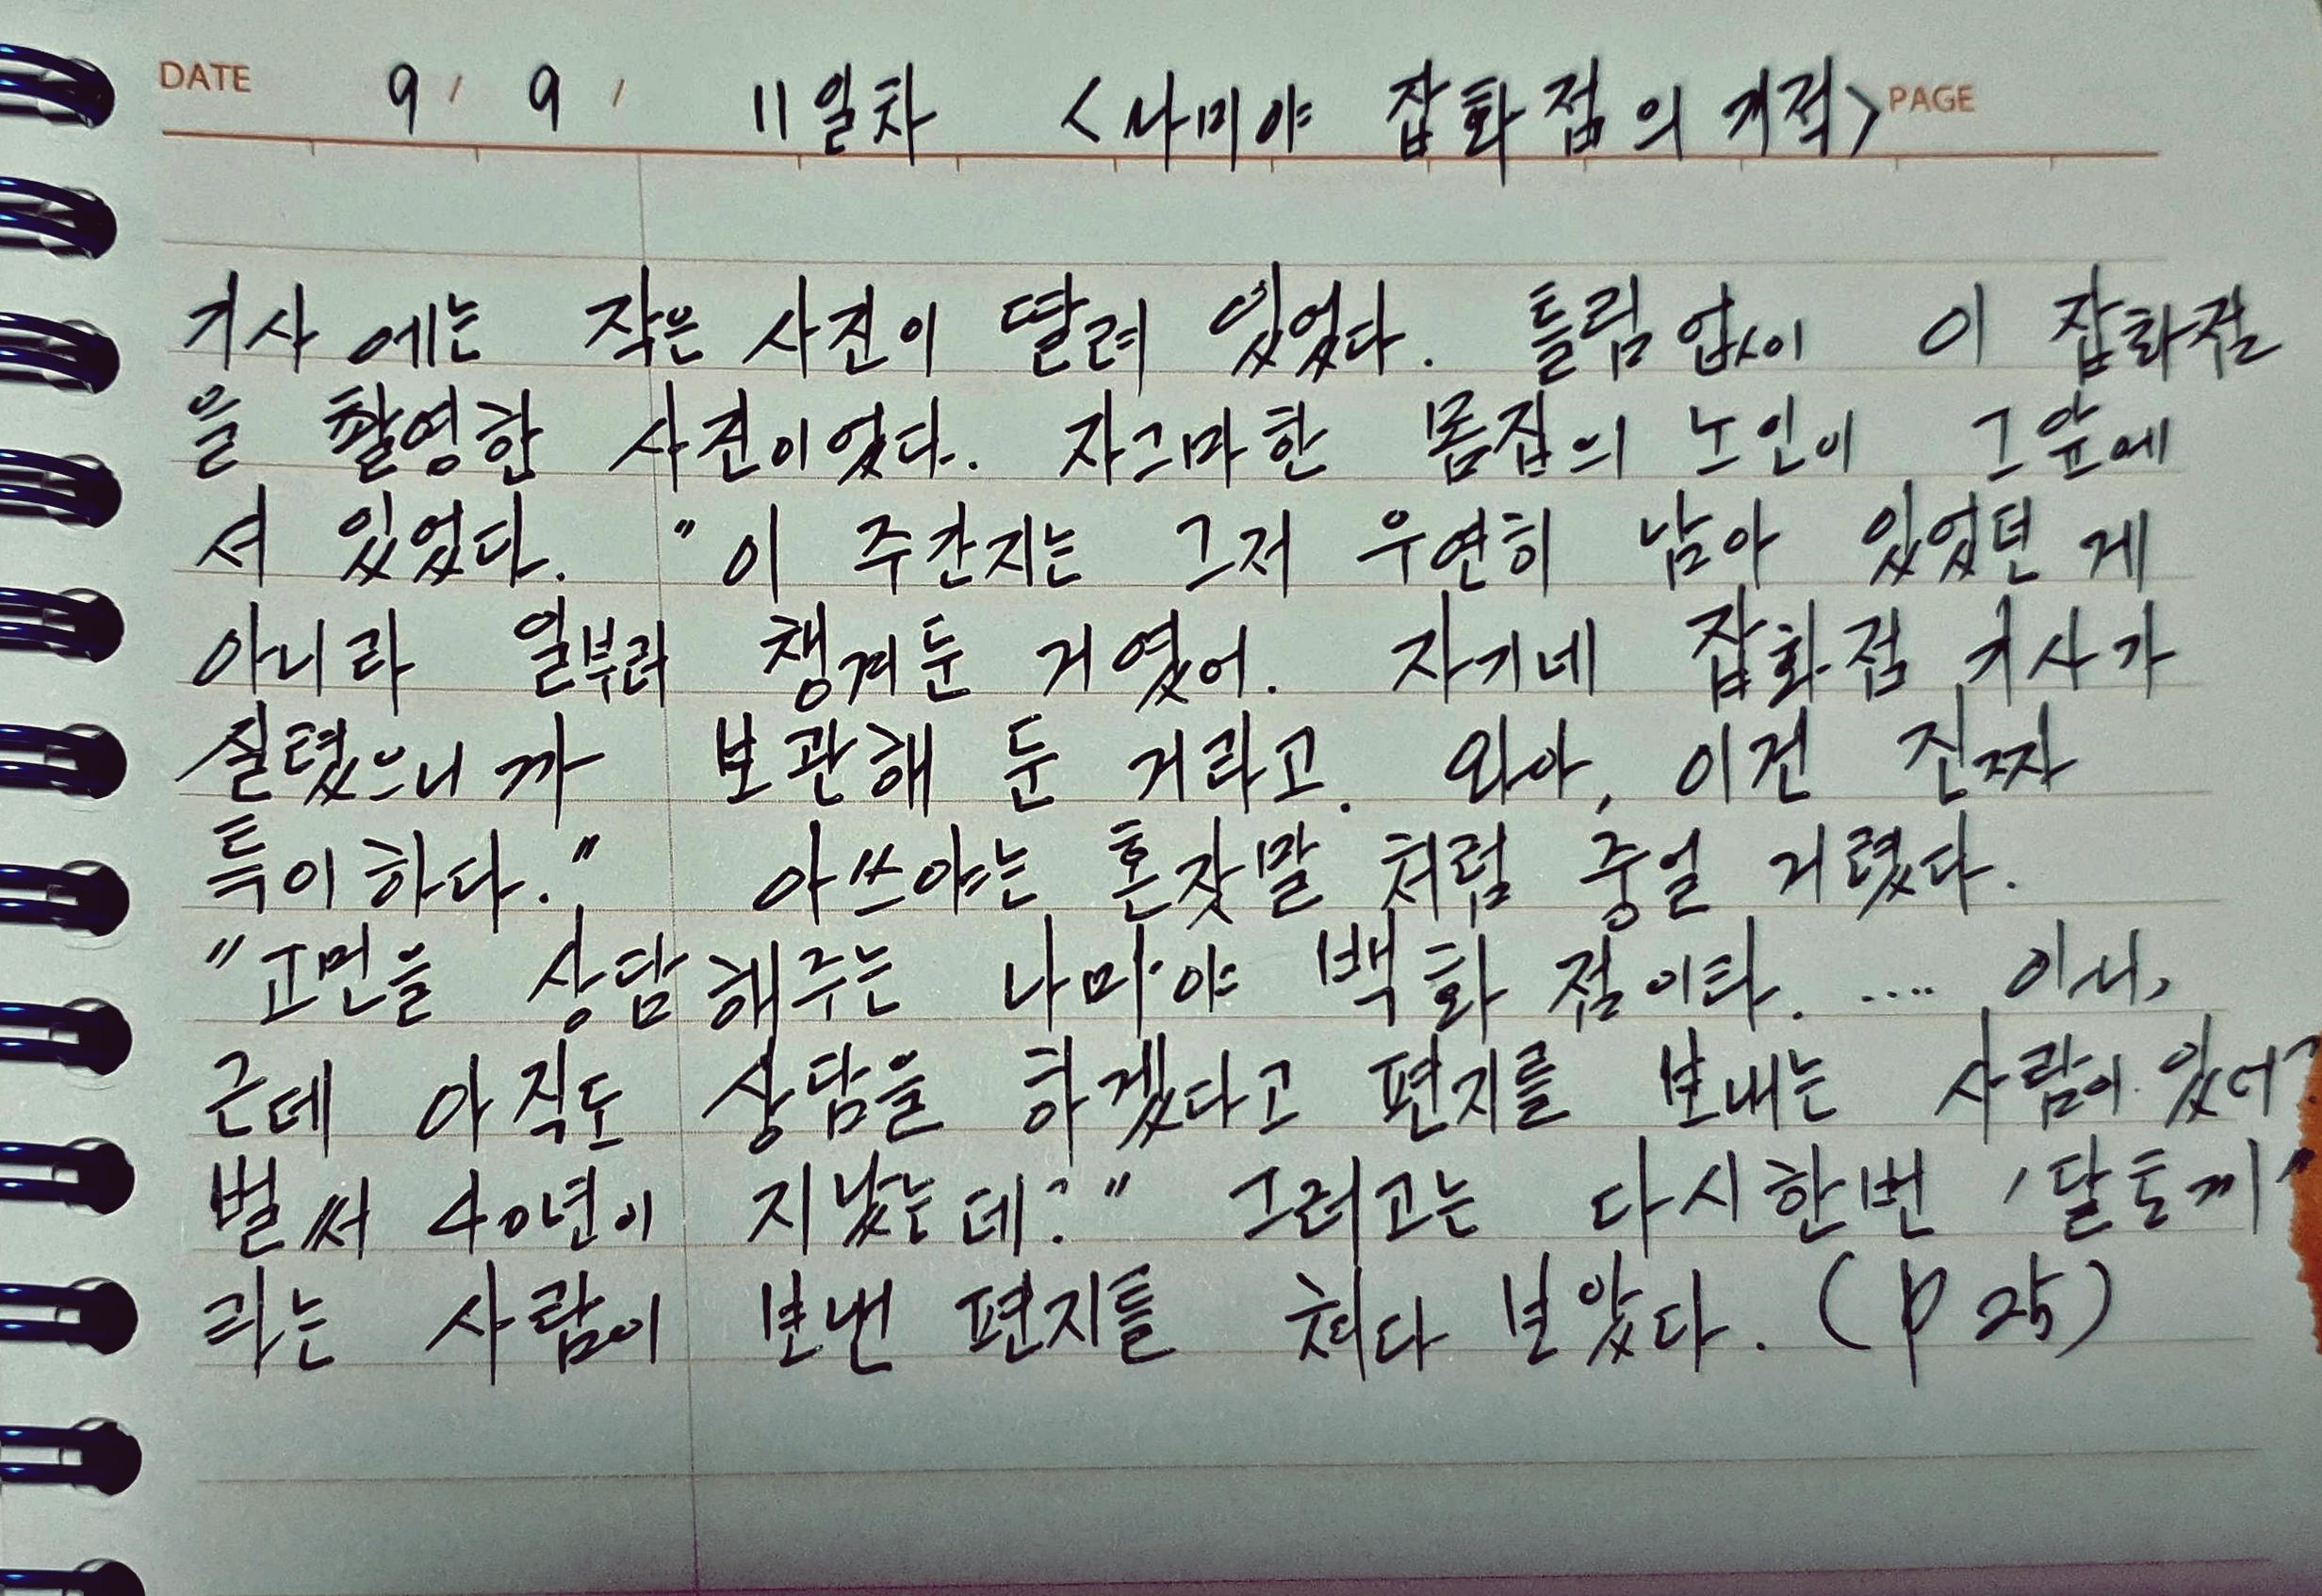 DATE 9 / 9 / 11일차 <나미야 잡화점의 기적> PAGE
기사에는 작은 사진이 딸려 있었다. 틀림없이 이 잡화점
을 촬영한 사진이었다. 자그마한 몸집의 노인이 그앞에
서 있었다. "이 주간지는 그저 우연히 남아 있었던 게
아니라 일부러 챙겨둔 거였어. 자기네 잡화점 기사가
실렸으니까 보관해 둔 거라고. 와아, 이건 진짜
특이하다." 아쓰야는 혼잣말 처럼 중얼 거렸다.
"고민을 상담해주는 나미야 백화점이라. .... 아니,
근데 아직도 상담을 하겠다고 편지를 보내는 사람이 있어?
벌써 40년이 지났는데?" 그러고는 다시한번 '달토끼'
라는 사람이 보낸 편지를 쳐다 보았다. (p 25)